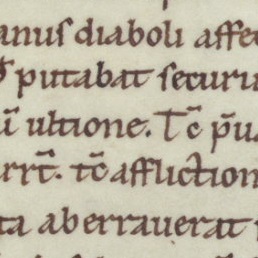 anus diaboli affe
putabat securu
ū ultione. Tc̄ p̄ua
rrt̄. tc̄ affliction
ta aberrauerat